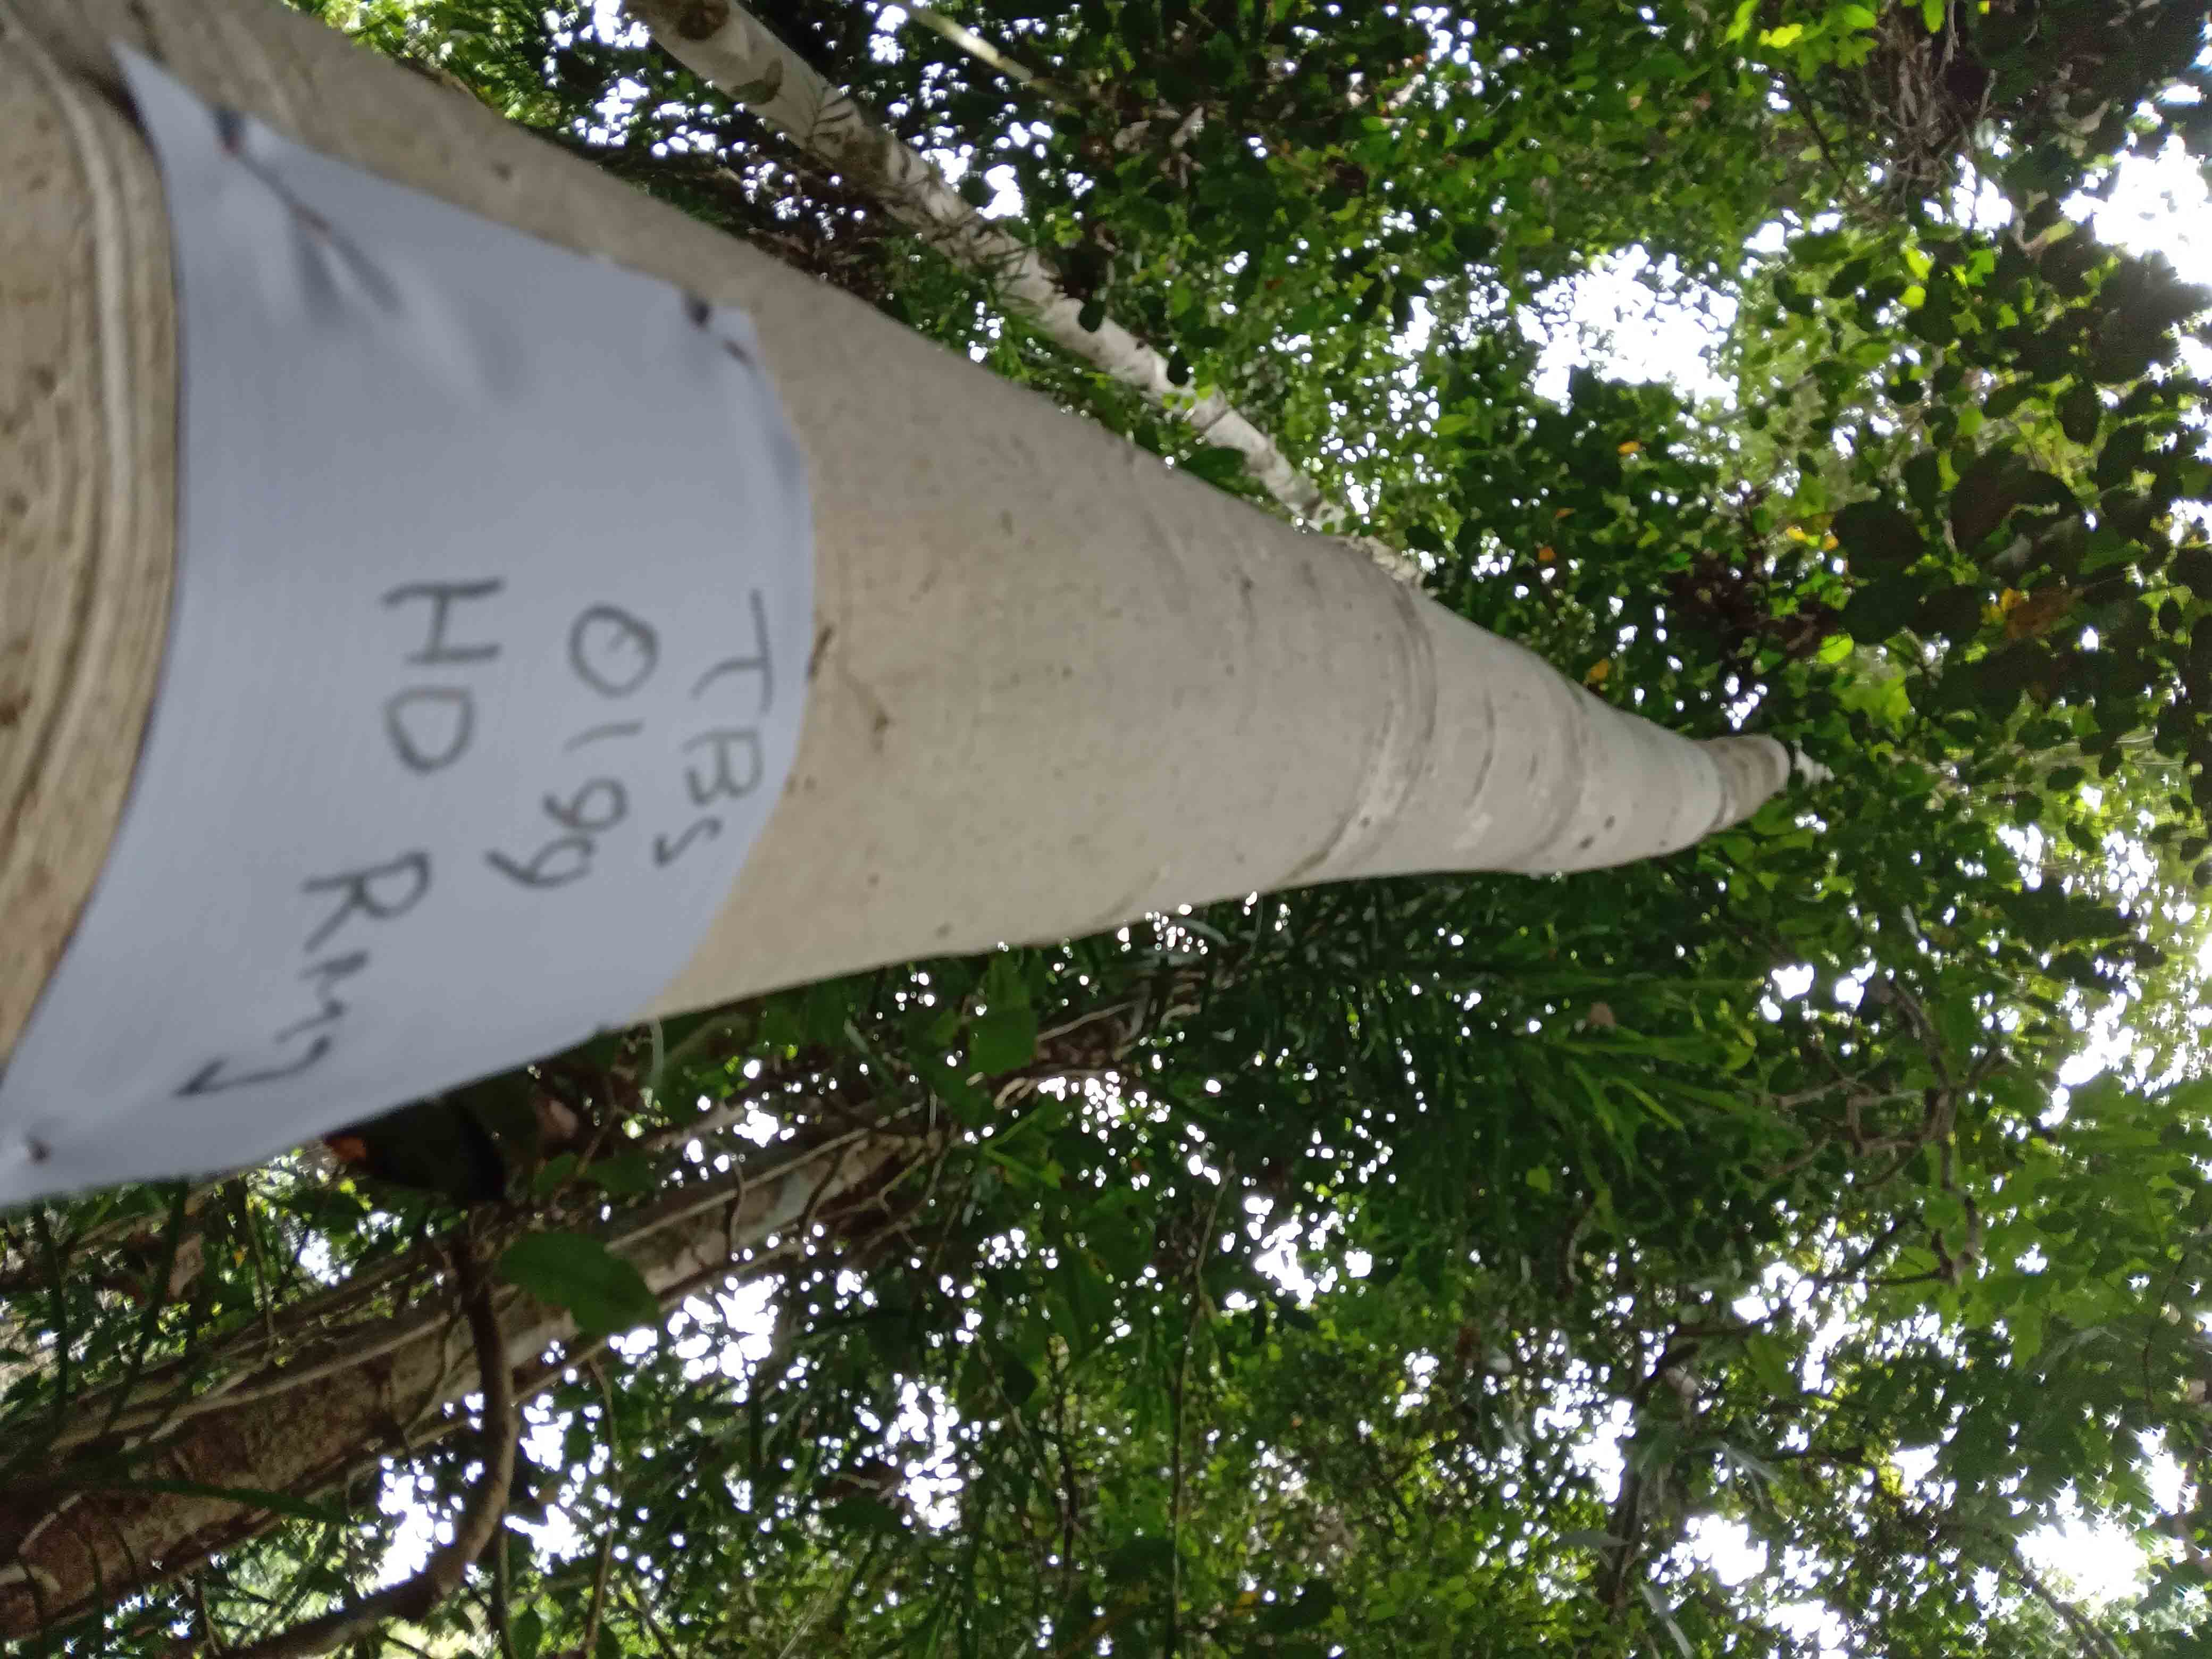 TBS
0199
HD RMJ